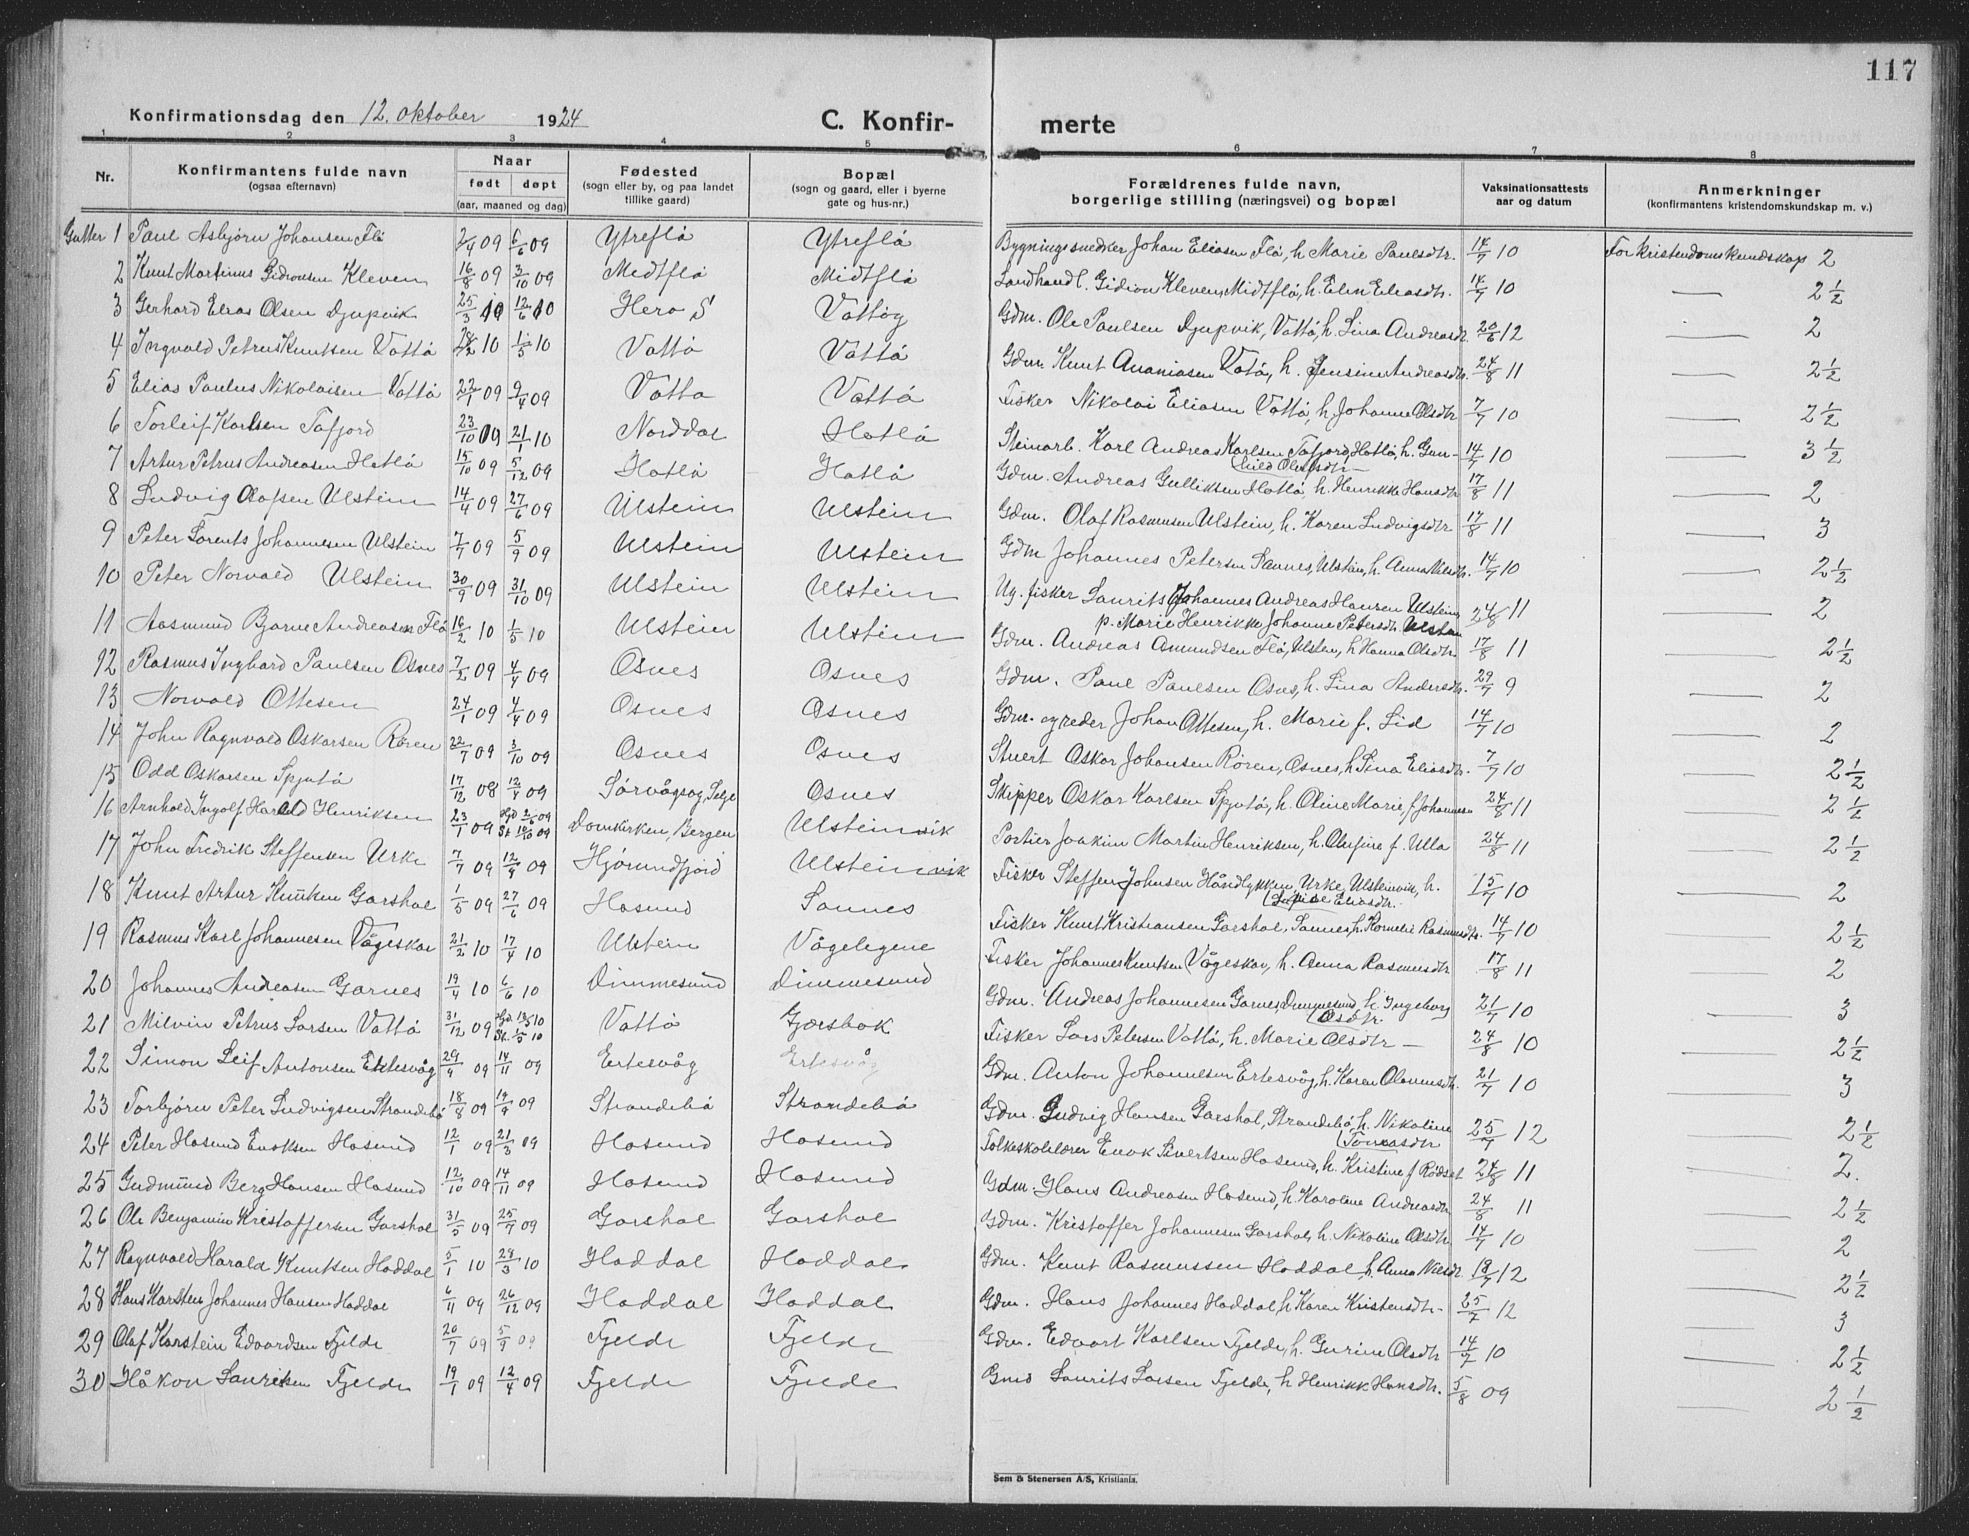 117
Konfirmationsdag den 12. oktober 1924
C. Konfir-
merte
1 2 3 4 5 6 7 8
Nr. Konfirmantens fulde navn (ogsaa efternavn) Naar født døpt (aar, maaned og dag) Fødested (sogn eller by, og paa landet tillike gaard) Bopæl (sogn og gaard, eller i byerne gate og hus-nr.) Forældrenes fulde navn, borgerlige stilling (næringsvei) og bopæl Vaksinationsattests aar og datum Anmerkninger (konfirmantens kristendomskundskap m. v.)
Gutter 1 Paul Asbjørn Johansen Flø 2/4 09 6/6 09 Ytreflø Ytreflø Bygningssnedker Johan Eliasen Flø, h. Marie Paulsdtr. 14/7 10 For kristendomskundskap 2
2 Knut Martinus Gidionsen Kleven 16/8 09 3/10 09 Midtflø Midtflø Landhandl. Gidion Kleven, Midtflø, h. Elen Eliasdtr. 14/7 10 — 2 1/2
3 Gerhard Elias Olsen Djupvik 25/3 10 12/6 10 Herø S Vattøy Gdm. Ole Paulsen Djupvik, Vattø, h. Lina Andreasdtr. 20/6 12 — 2
4 Ingvald Petrus Knutsen Vattø 28/2 10 1/5 10 Vattø Vattø Gdm. Knut Ananiasen Vatø, h. Jensine Andreasdtr. 24/8 11 — 2 1/2
5 Elias Paulus Nikolaisen Vattø 22/1 09 2/4 09 Vattø Vattø Fisker Nikolai Eliasen Vattø, h. Johanne Olsdtr 7/7 10 — 2 1/2
6 Torleif Karlsen Tafjord 23/10 09 21/1 10 Norddal Hatlø Steinarb. Karl Andreas Karlsen Tafjord, Hatlø, h. Gun-
hild Olesdtr — 14/7 10 — 3 1/2
7 Artur Petrus Andreasen Hatlø 15/10 09 5/12 09 Hatlø Hatlø Gdm. Andreas Gulliksen Hatlø, h. Henrikke Hansdtr 17/8 11 — 2
8 Ludvig Olafsen Ulstein 14/4 09 27/6 09 Ulstein Ulstein Gdm. Olaf Rasmusen Ulstein, h. Karen Ludvigsdtr 17/8 11 — 3
9 Peter Lorents Johannesen Ulstein 7/7 09 5/9 09 Ulstein Ulstein Gdm Johannes Petersen Sannes, Ulstein, h. Anna Nilsdtr. 14/7 10 — 2 1/2
10 Peter Norvald Ulstein 30/9 09 31/10 09 Ulstein Ulstein Ug. fisker Laurits Johannes Andreas Hansen Ulstein
p. Marie Henrikke Johanne Petersdtr Ulstein 24/8 11 — 2
11 Aasmund Bjarne Andreasen Flø 16/2 10 1/5 10 Ulstein Ulstein Gdm. Andreas Amundsen Flø, Ulstein, h. Hanna Olsdtr. 17/8 11 — 2 1/2
12 Rasmus Ingvard Paulsen Osnes 7/2 09 4/4 09 Osnes Osnes Gdm. Paul Paulsen Osnes, h. Lina Andersdtr. 29/7 9 — 2
13 Norvald Ottesen 24/1 09 4/4 09 Osnes Osnes Gdm. og reder Johan Ottesen, h. Marie f. Lid 14/7 10 — 2
14 John Ragnvald Oskarsen Røren 22/7 09 3/10 09 Osnes Osnes Stuert Oskar Johansen Røren, Osnes, h. Lina Eliasdtr. 7/7 10 — 2 1/2
15 Odd Oskarsen Spjutø 17/12 08 12/4 09 Sørvågsøy, Selje Osnes Skipper Oskar Karlsen Spjutø, h. Oline Marie f. Johannesen 24/8 11 — 2 1/2
16 Arnhold Ingolf Harald Henriksen 23/1 09 Hjd 2/6 09 St. 10/10 09 Domkirken, Bergen Ulsteinvik Portier Joakim Martin Henriksen, h. Olufine f. Ulla 24/8 11 — 2 1/2
17 John Fredrik Steffensen Urke 7/7 09 12/9 09 Hjørundfjord Ulsteinvik Fisker Steffen Johnsen Håndlykken, Urke, Ulsteinvik, h.
Eliasdtr. 15/7 10 — 2
18 Knut Artur Knutsen Garshol 1/5 09 27/6 09 Hasund Sannes Fisker Knut Kristiansen Garshol, Sannes, h. Kornelie Rasmusdtr. 14/7 10 — 2 1/2
19 Rasmus Karl Johannesen Vågeskar 21/2 10 17/4 10 Ulstein Vågelegene Fisker Johannes Knutsen Vågeskar, h. Anna Rasmusdtr. 17/8 11 — 2
20 Johannes Andreasen Garnes 19/4 10 6/6 10 Dimmesund Dimmesund Gdm. Andreas Johannesen Garnes, Dimmesund, h. Ingeborg
Olsdtr. 21/7 10 — 3
21 Milvin Petrus Larsen Vattø 31/12 09 Hjd. 13/3 10 St. 1/5 10 Vattø Gjærsbak Fisker Lars Petersen Vattø, h. Marie Olsdtr — 24/8 10 — 2 1/2
22 Simon Leif Antonsen Ertesvåg 29/9 09 14/11 09 Ertesvåg Ertesvåg Gdm. Anton Johannesen Ertesvåg, h. Karen Olavensdtr. 21/7 10 — 3
23 Torbjørn Peter Ludvigsen Strandebø 18/8 09 19/9 09 Strandebø Strandebø Gdm. Ludvig Hansen Garshol, Strandebø, h. Nikoline
Tomasdtr 25/7 12 — 2 1/2
24 Peter Hasund Enoksen Hasund 12/1 09 21/3 09 Hasund Hasund Folkeskolelærer Enok Sivertsen Hasund, h. Kristine f. Rødset 24/8 11 — 2.
25 Gudmund Berg Hansen Hasund 12/10 09 14/11 09 Hasund Hasund Gdm. Hans Andreasen Hasund, h. Karoline Andreasdtr. 24/8 11 — 2 1/2
26 Ole Benjamin Kristoffersen Garshol 31/5 09 25/7 09 Garshol Garshol Gdm. Kristoffer Johannesen Garshol, h. Nikoline Olsdtr. 14/7 10 — 2
27 Ragnvald Harald Knutsen Haddal 5/1 10 28/3 10 Haddal Haddal Gdm. Knut Rasmussen Haddal, h. Anna Nilsdtr. 18/7 12 — 2 1/2
28 Hans Karsten Johannes Hansen Haddal 6/11 09 26/12 09 Haddal Haddal Gdm. Hans Johannes Haddal, h. Karen Kristensdtr. 25/7 12 — 3
29 Olaf Karstein Edvardsen Fjelde 20/7 09 5/9 09 Fjelde Fjelde Gdm. Edvart Karlsen Fjelde, h. Gurine Olsdtr 14/7 10 — 2 1/2
30 Håkon Lauritsen Fjelde 19/1 09 12/4 09 Fjelde Fjelde Gmd Laurits Larsen Fjelde, h. Henrikk Hansdtr. 5/8 09 — 2 1/2
Sem & Stenersen A/S, Kristiania.